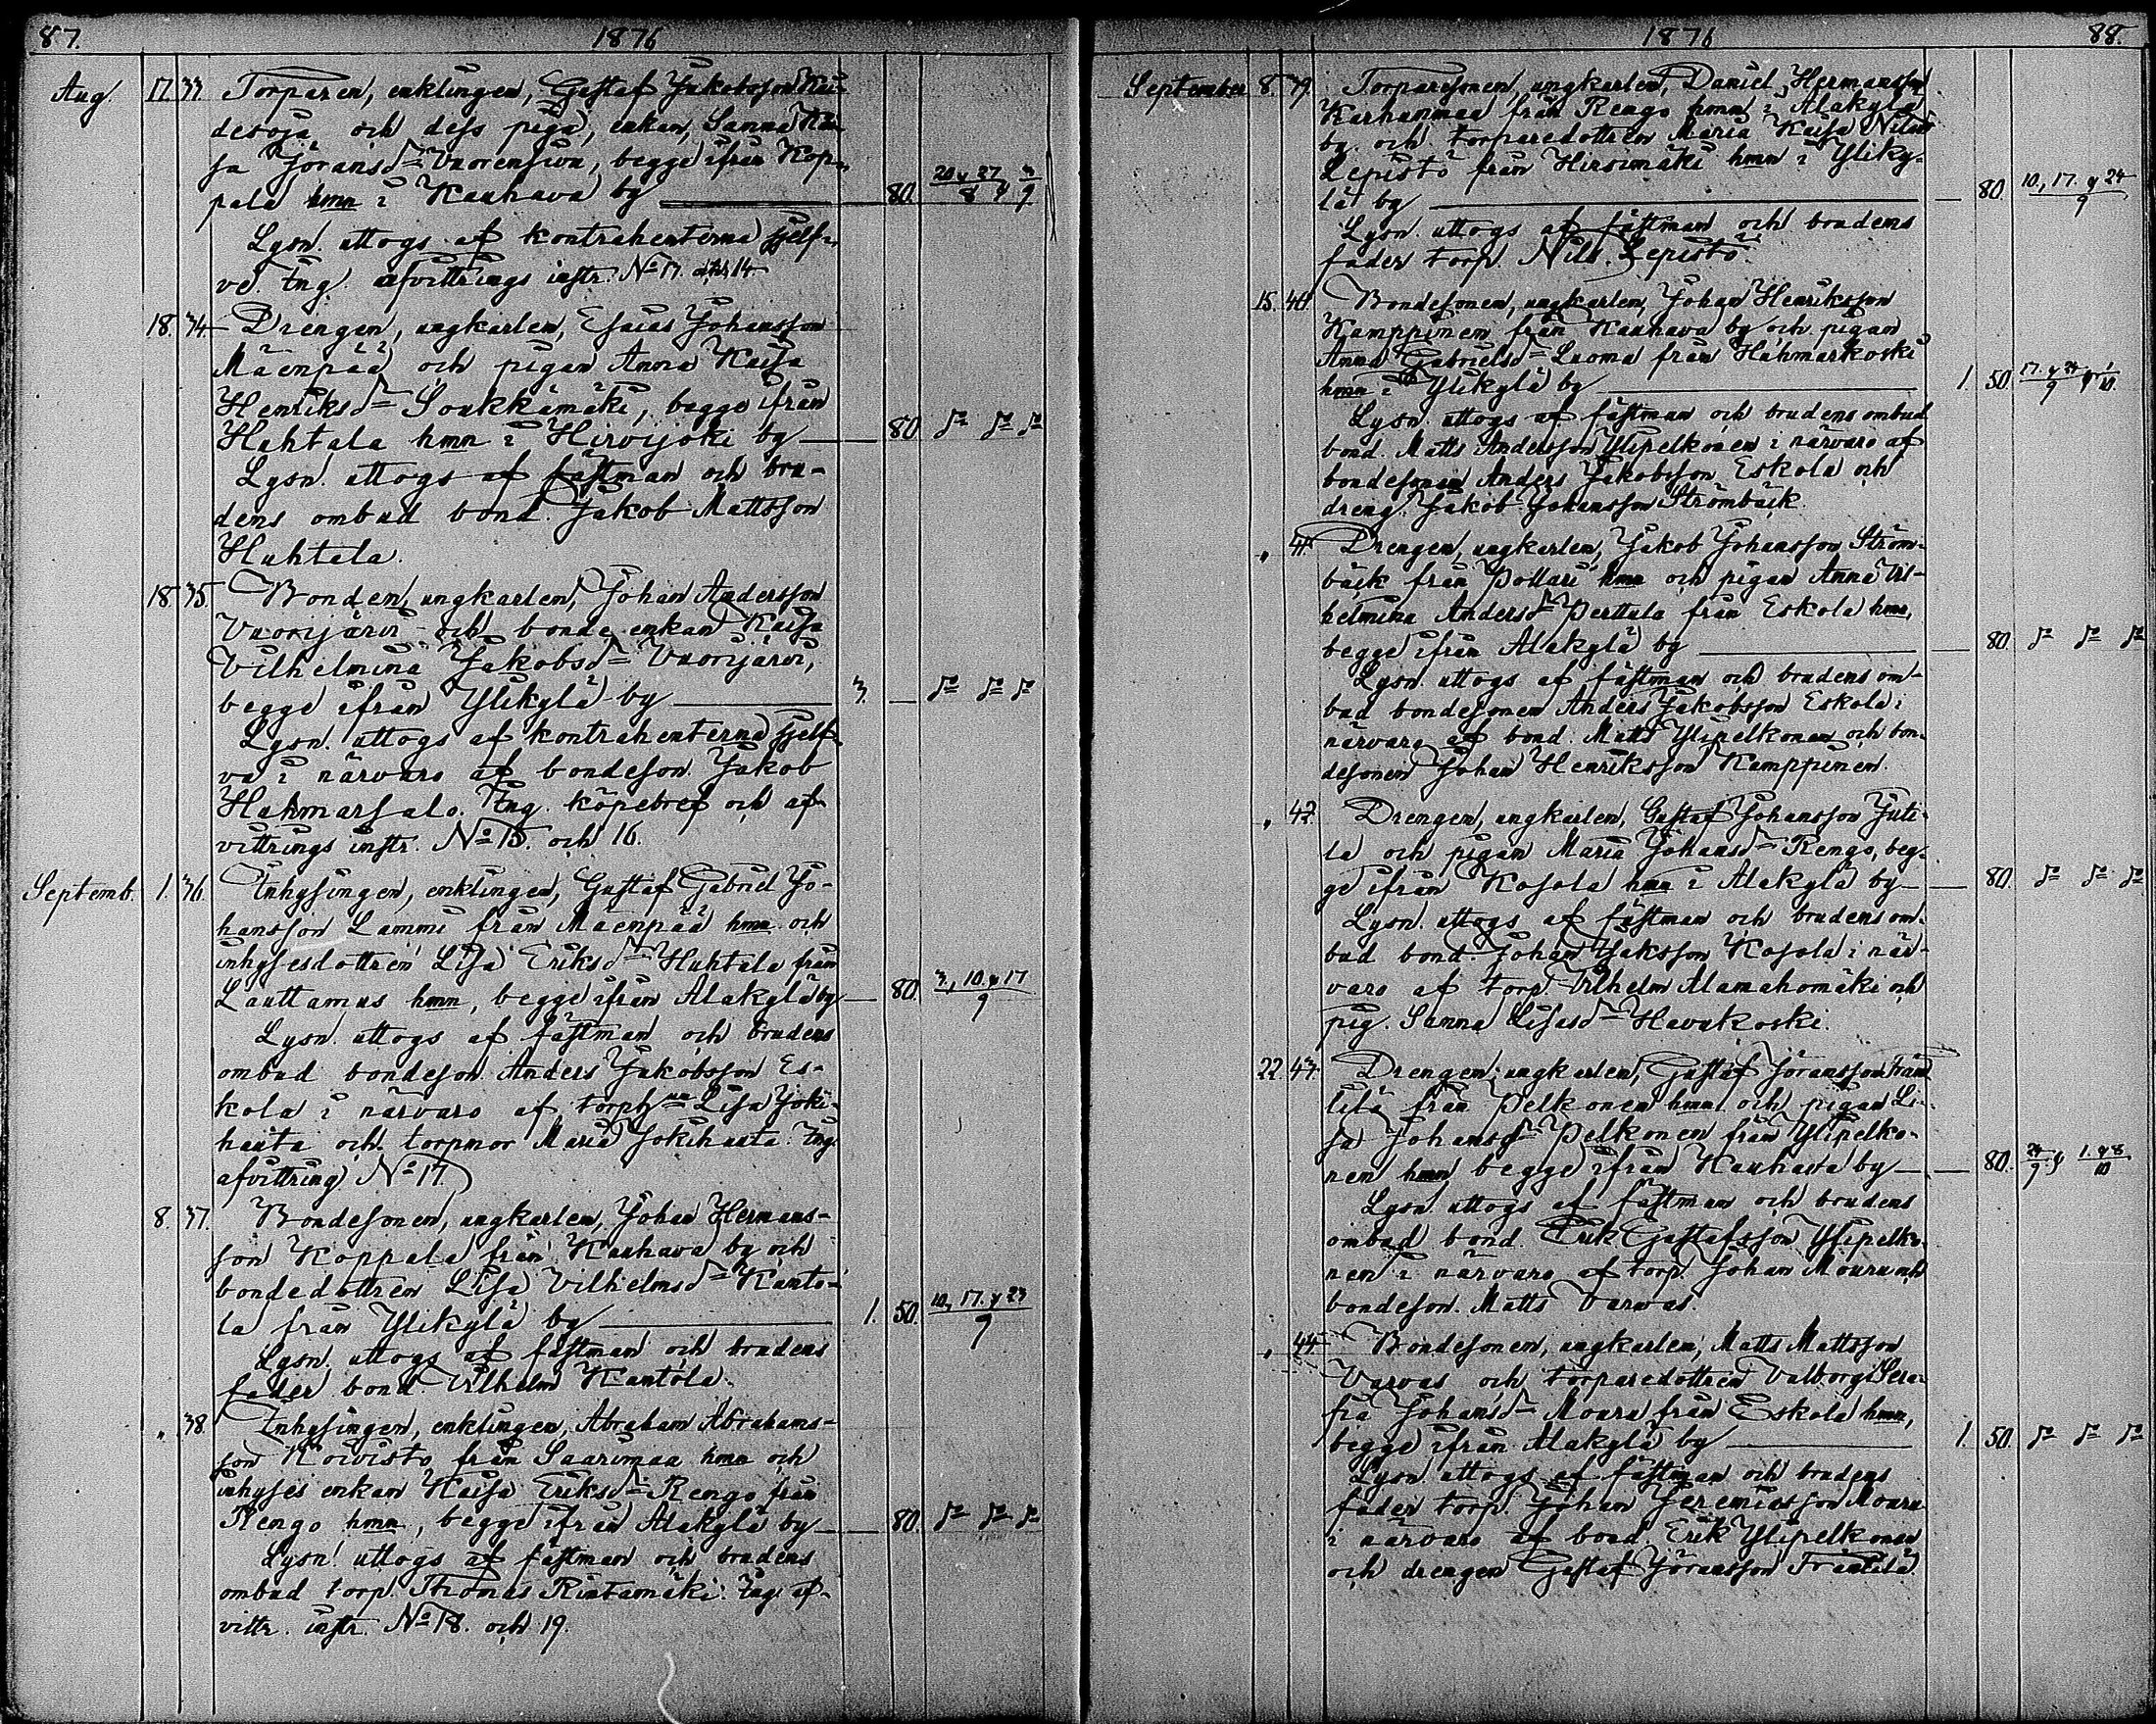 87. 1876
Aug. 17. 33. Torparen, enklingen, Gustaf Jakobsson
desoja och dess piga, enkan, Sanna
sa Jöransd:r Vuorensivu, begge ifrån Kop-
pala hmn i Kauhava by 80. 20 y 27/8 y 3/9
Lysn. uttogs af kontrahenterna sjelf-
va. Ing. afvittrings instr. No 17. 14
18. 34. Drengen, ungkarlen, Esaias Johansson
Mäenpää och pigan Anna Kaisa
Henriksd:r Soukkamäki, begge ifrån
Huhtala hmn i Hirvijoki by 80 d:o d:o d:o
Lysn. uttogs af fästman och bru-
dens ombud bond. Jakob Mattsson
Huhtala.
18. 35. Bonden, ungkarlen, Johan Andersson
Vuorijärvi och bonde enkan Kaisa
Vilhelmina Jakobsd:r Vuorijärvi,
begge ifrån Ylikylä by 3. — d:o d:o d:o
Lysn. uttogs af kontrahenterna sjelf-
va i närvaro af bondeson. Jakob
Hahmarsalo. Ing. köpebref och af-
vittrings instr. No 15. och 16.
Septemb. 1. 36. Inhysingen, enklingen, Gustaf Gabriel Jo-
hansson Lammi från Mäenpää hmn och
inhysesdottren Lisa Eriksd:r Huhtala från
Lauttamus hmn, begge ifrån Alakylä by 80. 3., 10. y 17/9
Lysn. uttogs af fästman och brudens
ombud bondeson. Anders Jakobsson Es-
kola i närvaro af Lisa Joki-
hauta och torpmor Maria Jokihauta. Ing.
afvittring No 17.
8. 37. Bondesonen, ungkarlen, Johan Hermans-
son Koppala från Kauhava by och
bondedottren Lisa Vilhelmsd:r Kanto-
la från Ylikylä by 1. 50. 10, 17. y 23/9
Lysn. uttogs af fästman och brudens
fader bond. Vilhelm Kantola.
„ 38. Inhysingen, enklingen, Abraham Abrahams-
son Koivisto från Saarimaa hmn och
inhyses enkan Kaisa Eriksd:r Rengo från
Rengo hmn, begge ifrån Alakylä by 80. d:o d:o d:o
Lysn. uttogs af fästman och brudens
ombud torp. Thomas Rintamäki. Ing. af-
vittr. instr. No 18. och 19.
1876 88.
September 8. 39. Torparesonen, ungkarlen, Daniel Hermansson
Karhunmaa från Rengo hmn i Alakylä
by och torparedottren Maria Kaisa Nilsd:r
Lepistö från Hirsimäki hmn i Yliky-
lä by — 80. 10., 17. y 24/9
Lysn. uttogs af fästman och brudens
fader torp. Nils Lepistö.
15. 40. Bondesonen, ungkarlen, Johan Henriksson
Kamppinen från Kauhava by och pigan
Anna Gabrielsd:r Luoma från Hahmarkoski
hmn i Ylikylä by 1. 50. 17. y 24/9 y 1/10
Lysn. uttogs af fästman och brudens ombud
bond. Matts Andersson Ylipelkonen i närvaro af
bondesonen Anders Jakobsson Eskola och
dreng. Jakob Johansson Strömbäck.
„ 41. Drengen, ungkarlen, Jakob Johansson Ström-
bäck från Pollari hmn och pigan Anna Vil-
helmina Andersd:r Perttula från Eskola hmn,
begge ifrån Alakylä by — 80. d:o d:o d:o
Lysn. uttogs af fästman och brudens om-
bud bondesonen Anders Jakobsson Eskola i
närvaro af bond. Matts Ylipelkonen och bon-
desonen Johan Henriksson Kamppinen.
„ 42. Drengen, ungkarlen, Gustaf Johansson Juti-
la och pigan Maria Johansd:r Rengo, beg-
ge ifrån Kosola hmn i Alakylä by — 80. d:o d:o d:o
Lysn. uttogs af fästman och brudens om-
bud bond. Johan Isaksson Kosola i när-
varo af torp. Vilhelm Alamahomäki och
pig. Sanna Lisasd:r Havukoski.
22. 43. Drengen, ungkarlen, Gustaf Jöransson Frän-
tilä från Pelkonen hmn och pigan Li-
sa Johansd:r Pelkonen från Ylipelko-
nen hmn, begge ifrån Kauhava by — 80. 24/9 y 1. y 8/10
Lysn. uttogs af fästman och brudens
ombud bond. Erik Gustafsson Ylipelko-
nen i närvaro af torp. Johan Mouru och
bondeson. Matts Varvas.
„ 44. Bondesonen, ungkarlen, Matts Mattsson
Varvas och torparedottren Valborg Sera-
fia Johansd:r Mouru från Eskola hmn,
begge ifrån Alakylä by 1. 50. d:o d:o d:o
Lysn. uttogs af fästman och brudens
fader torp. Johan Jeremiasson Mouru
i närvaro af bond. Erik Ylipelkonen
och drengen Gustaf Jöransson Fräntilä.